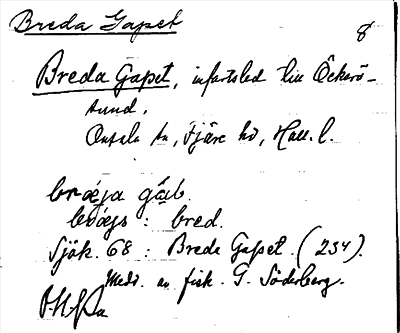 Breda Gapet
8
Breda Gapet, infartsled till Öckerö-
sund.
Onsala sn, Fjäre hd, Hall. l.
bræ̂ja gáb
: bred.
Sjök. 68 : Breda Gapet. (234).
Medd. av fisk. G. Söderberg.